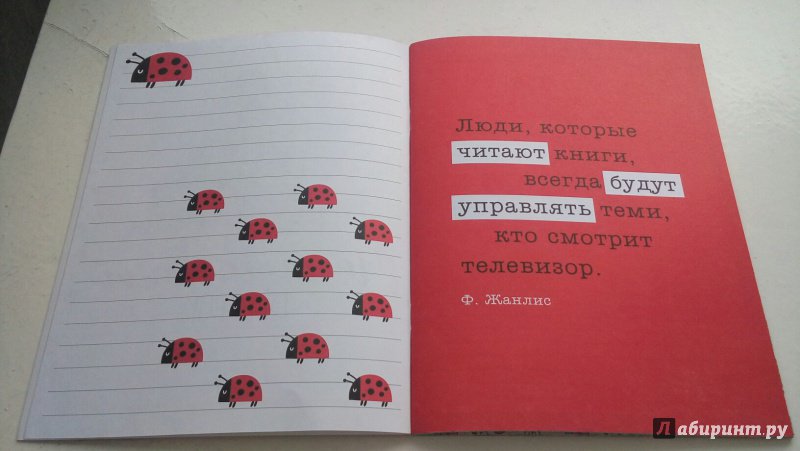 Люди, которые
читают книги,
всегда будут
управлять теми,
кто смотрит
телевизор.
Ф. Жанлис
Лабиринт.ру